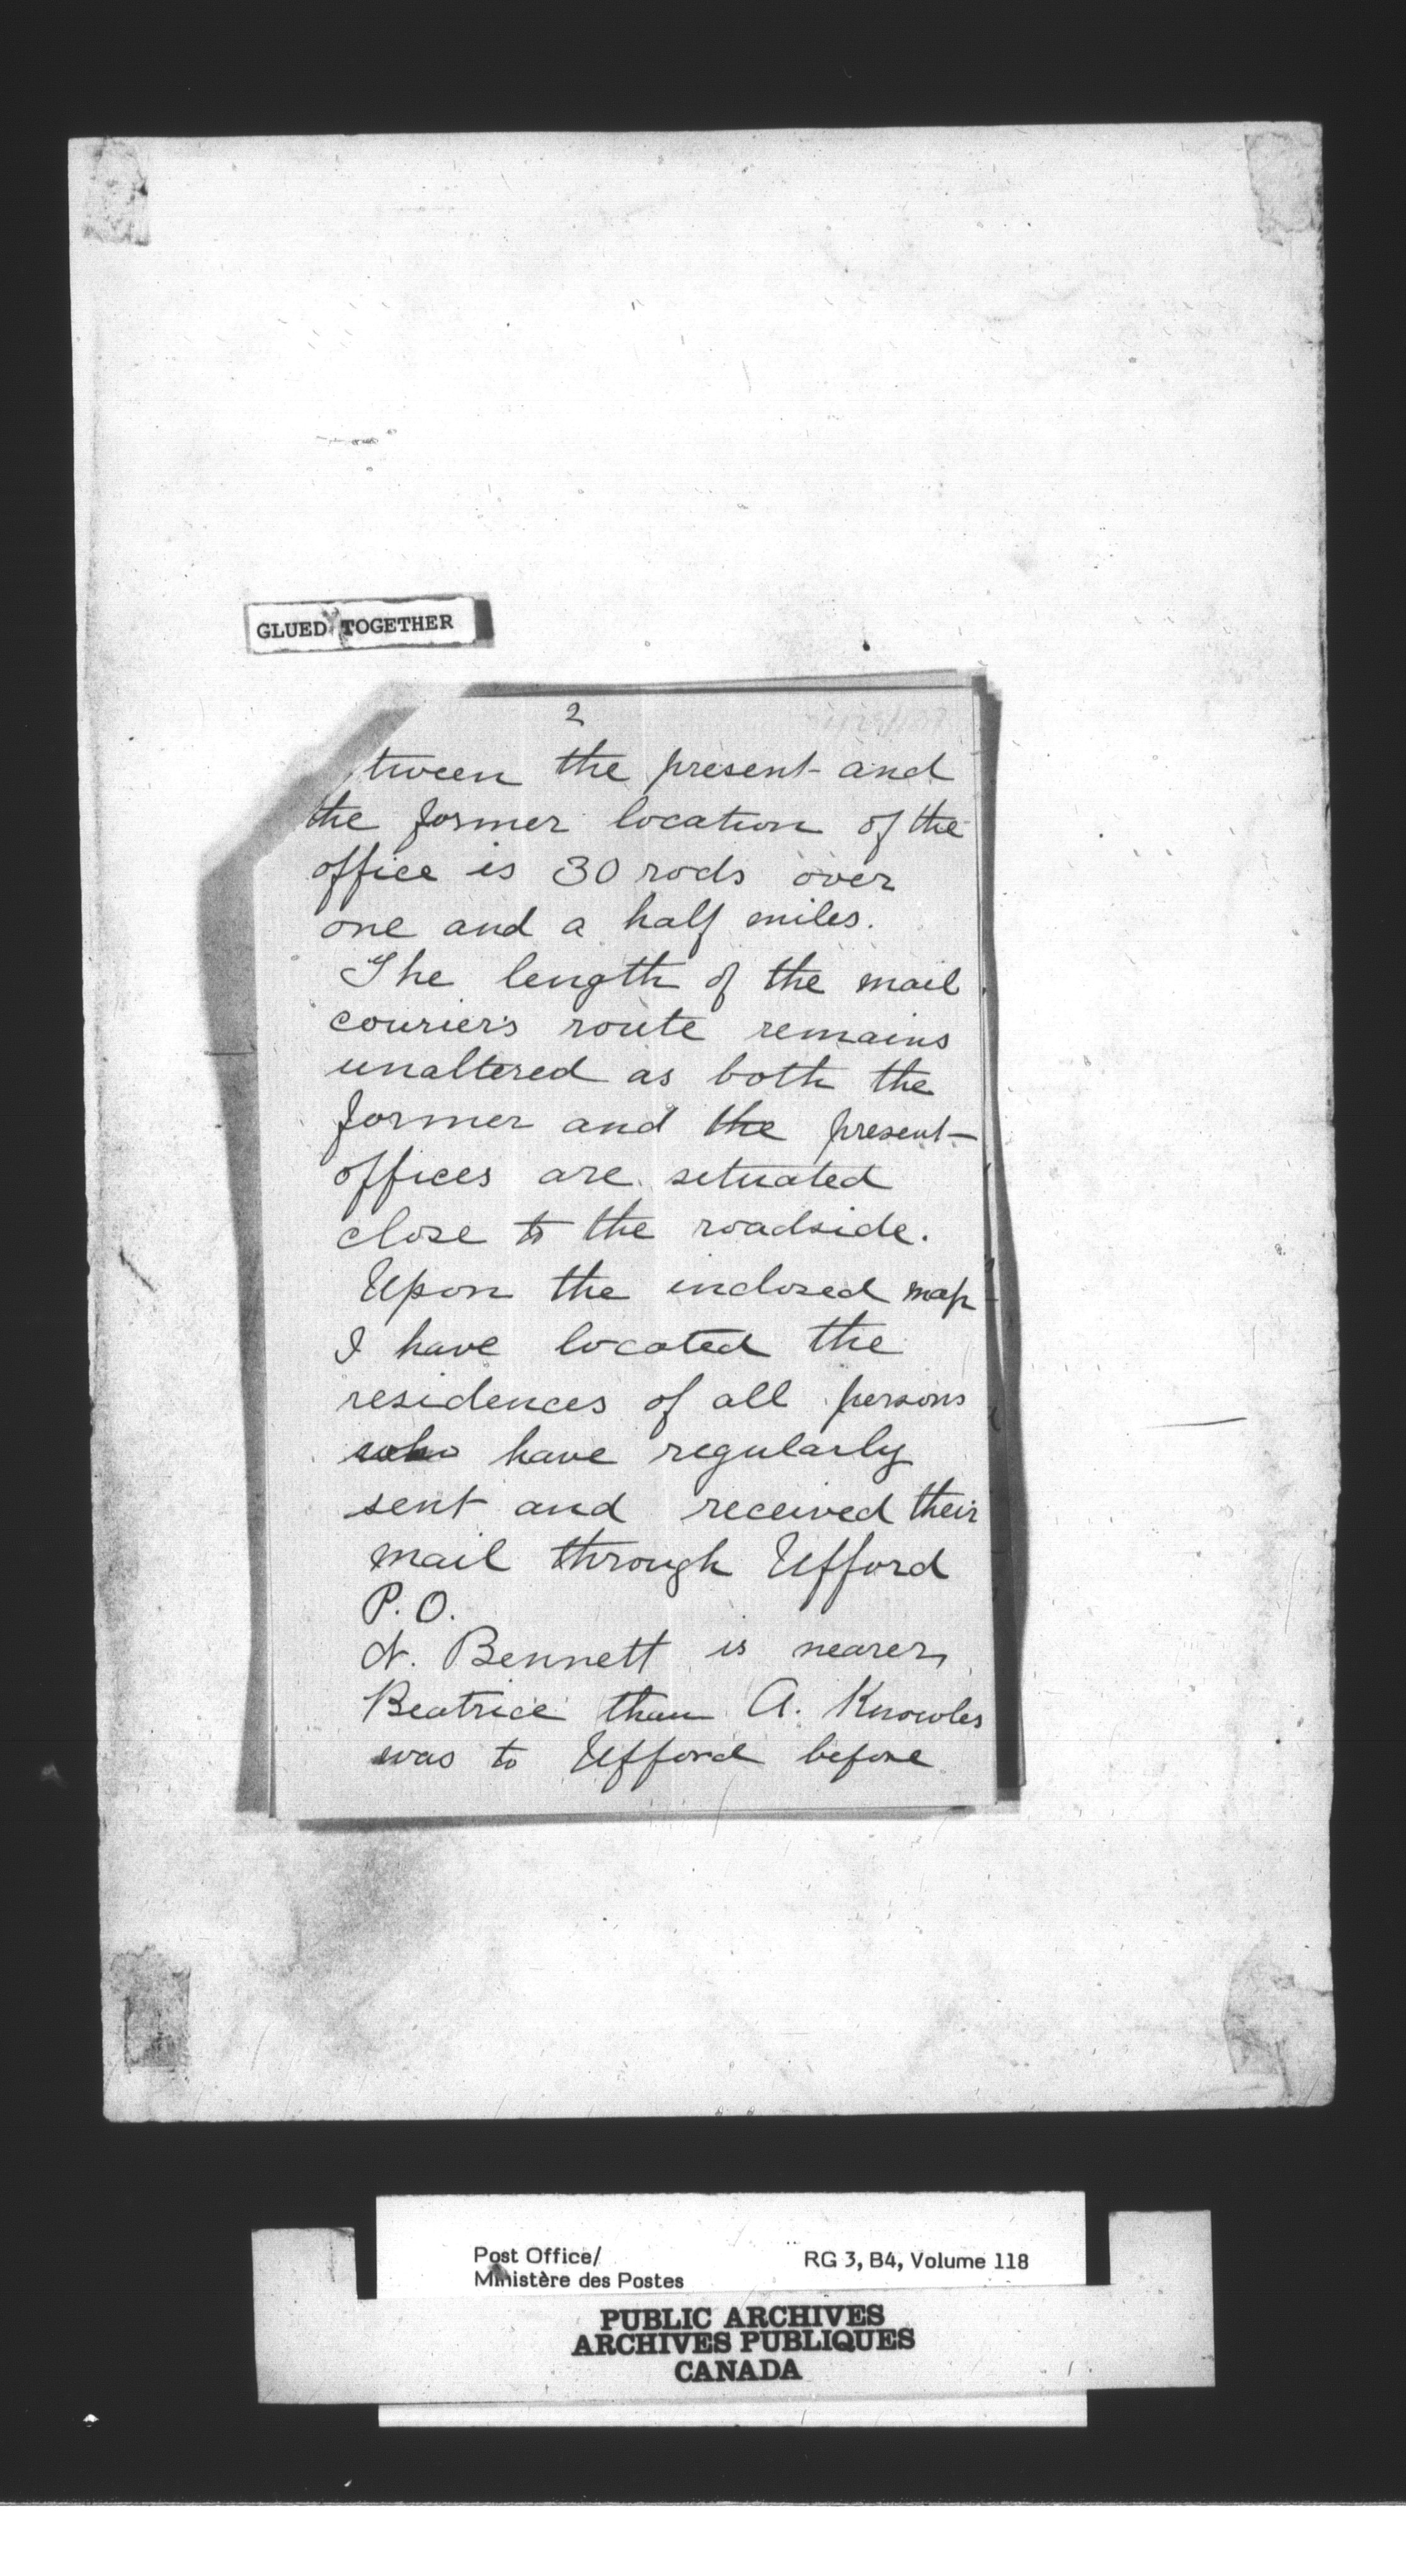 GLUED TOGETHER
2
tween the present and
the former location of the
office is 30 rods over
one and a half miles.
The length of the mail
courier's route remains
unaltered as both the
former and the present
offices are situated
close to the roadside.
Upon the inclosed map
I have located the
residences of all persons
who have regularly
sent and received their
mail through Ufford
P.O.
N. Bennett is nearer
Beatrice than A. Knowles
was to Ufford before
Post Office/
Ministère des Postes
RG 3, B4, Volume 118
PUBLIC ARCHIVES
ARCHIVES PUBLIQUES
CANADA